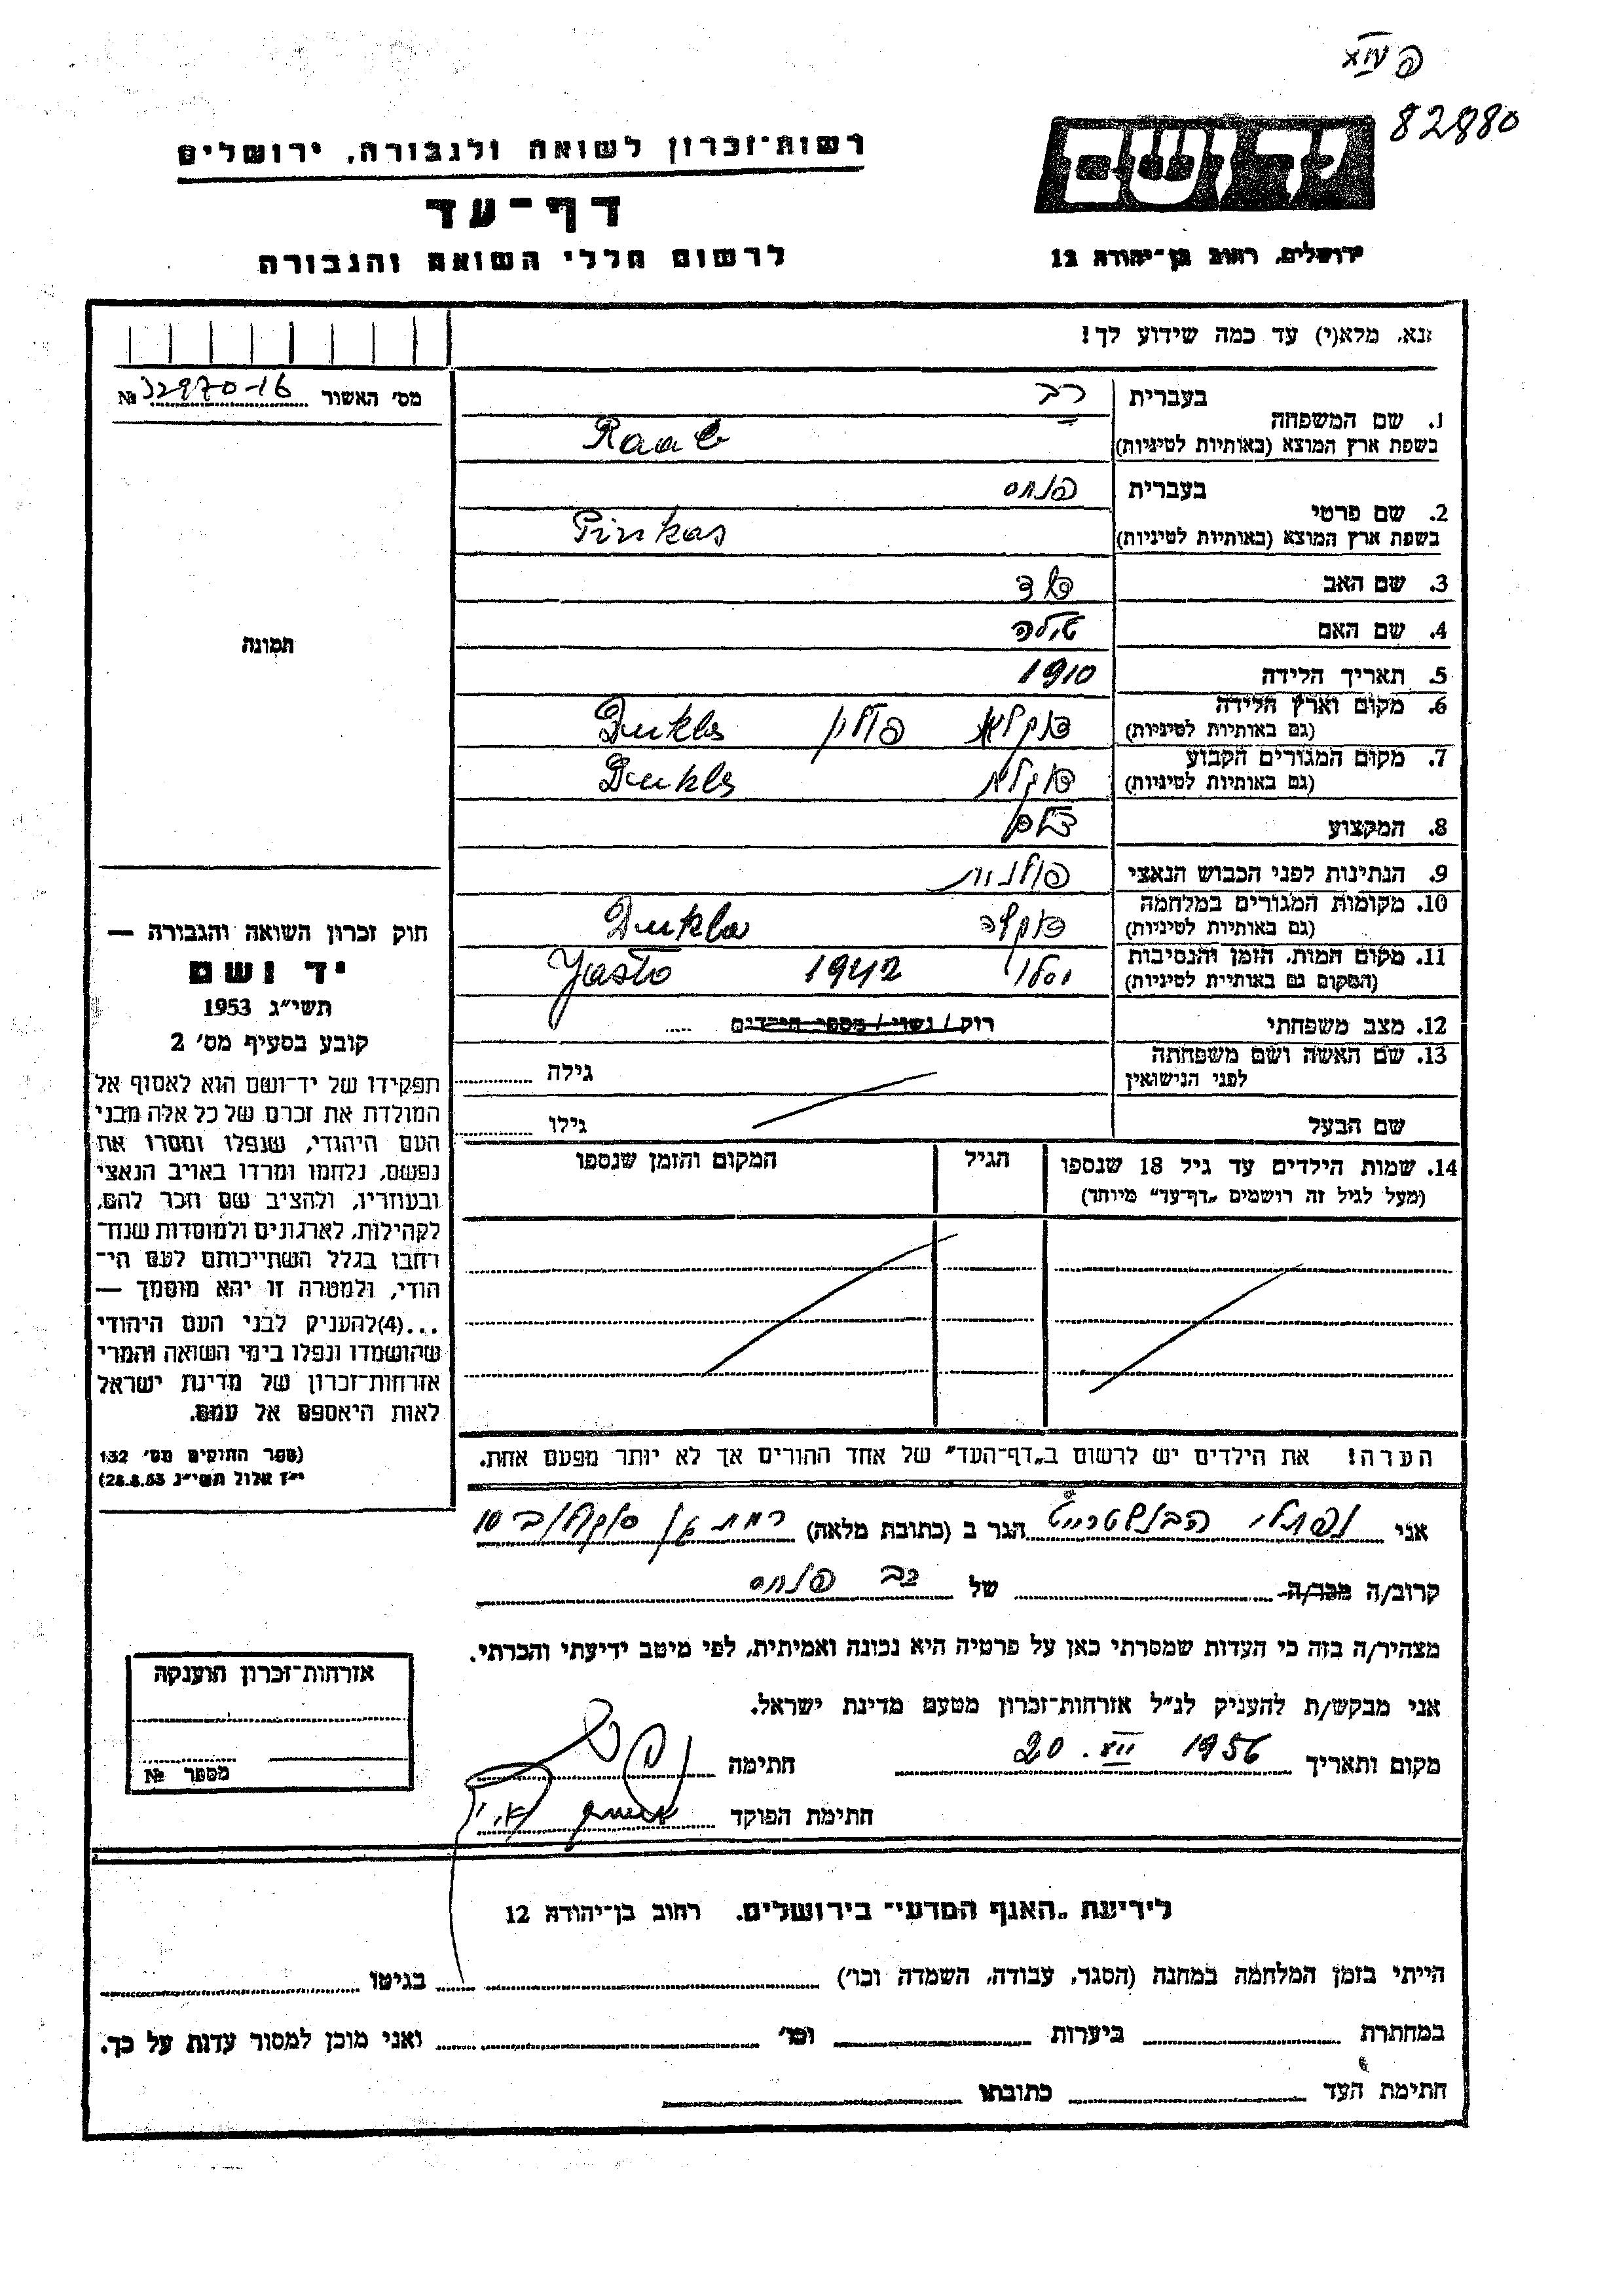 82880
רשות־זכרון לשואה ולגבורה, ירושלים
דף־עד
לרשום חללי השואה והגבורה
יד ושם
ירושלים, רחוב בן־יהודה 12
נא, מלא(י) עד כמה שידוע לך!
מס' האשור 32970-16 №
תמונה
1. שם המשפחה בעברית רב
בשפת ארץ המוצא (באותיות לטיניות) Raab
2. שם פרטי בעברית פנחס
בשפת ארץ המוצא (באותיות לטיניות) Pinkas
3. שם האב
4. שם האם
5. תאריך הלידה 1910
6. מקום וארץ הלידה דוקלא פולין Dukla
(גם באותיות לטיניות)
7. מקום המגורים הקבוע דוקלא Dukla
(גם באותיות לטיניות)
8. המקצוע
9. הנתינות לפני הכבוש הנאצי פולנית
10. מקומות המגורים במלחמה דוקלה Dukla
(גם באותיות לטיניות)
11. מקום המות, הזמן והנסיבות יסלו 1942 Jasło
(המקום גם באותיות לטיניות)
12. מצב משפחתי רוק / נשוי / מספר הילדים .....
13. שם האשה ושם משפחתה גילה
לפני הנישואין
שם הבעל גילו
14. שמות הילדים עד גיל 18 שנספו הגיל המקום והזמן שנספו
(מעל לגיל זה רושמים „דף־עד" מיוחד)
הערה! את הילדים יש לרשום ב„דף־העד" של אחד ההורים אך לא יותר מפעם אחת.
חוק זכרון השואה והגבורה —
יד ושם
תשי"ג 1953
קובע בסעיף מס' 2
תפקידו של יד־ושם הוא לאסוף אל
המולדת את זכרם של כל אלה מבני
העם היהודי, שנפלו ומסרו את
נפשם, נלחמו ומרדו באויב הנאצי
ובעוזריו, ולהציב שם וזכר להם,
לקהילות, לארגונים ולמוסדות שנח־
רבו בגלל השתייכותם לעם הי־
הודי, ולמטרה זו יהא מוסמך —
...(4)להעניק לבני העם היהודי
שהושמדו ונפלו בימי השואה והמרי
אזרחות־זכרון של מדינת ישראל
לאות היאספם אל עמם.
(ספר החוקים מס' 132
י"ז אלול תשי"ג 28.8.53)
אני נפתלי הבנשטרייט הגר ב (כתובת מלאה) רמת גן סוקולוב 10
קרוב/ה מכר/ה של רב פנחס
מצהיר/ה בזה כי העדות שמסרתי כאן על פרטיה היא נכונה ואמיתית, לפי מיטב ידיעתי והכרתי.
אני מבקש/ת להעניק לנ"ל אזרחות־זכרון מטעם מדינת ישראל.
מקום ותאריך 20. VII 1956 חתימה
חתימת הפוקד
אזרחות־זכרון הוענקה
מספר №
לידיעת „האגף המדעי" בירושלים, רחוב בן־יהודה 12
הייתי בזמן המלחמה במחנה (הסגר, עבודה, השמדה וכו') בגיטו
במחתרת ביערות וכו' ואני מוכן למסור עדות על כך.
חתימת העד כתובתו